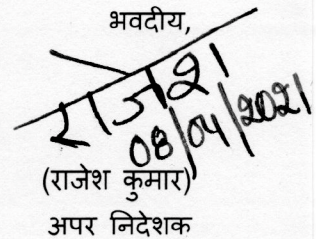 भवदीय,
राजेश
08/04/2021
(राजेश कुमार)
अपर निदेशक